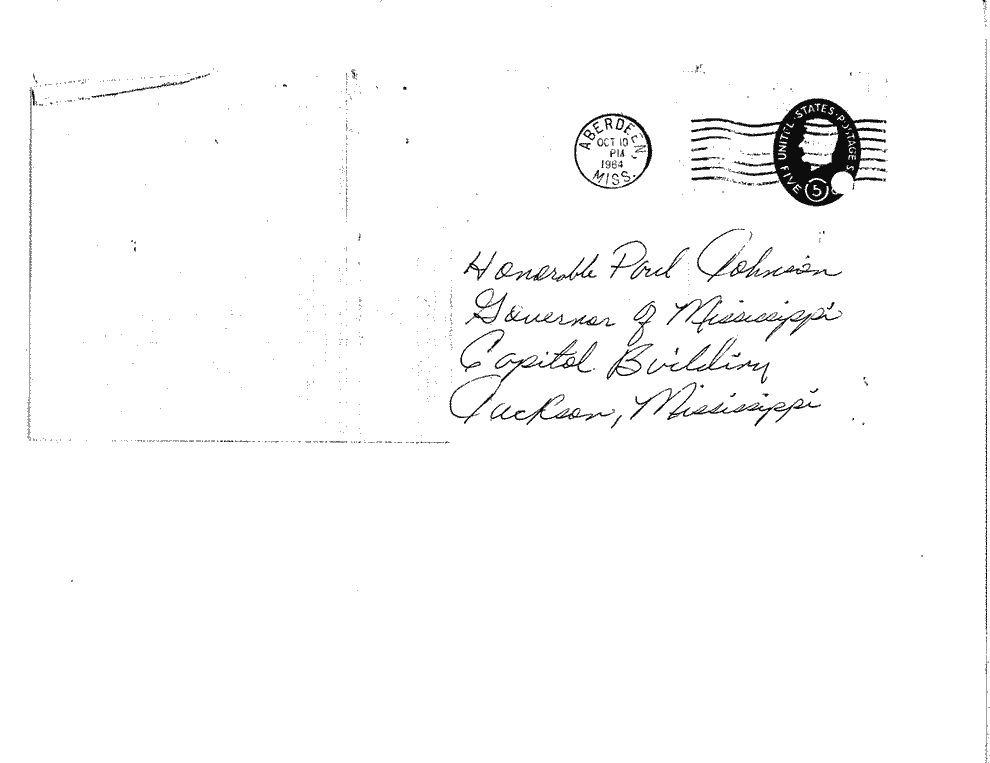 ABERDEEN,
OCT 10
PM
1964
MISS.
UNITED STATES POSTAGE
FIVE 5
Honorable Paul Johnson
Governor of Mississippi
Capitol Building
Jackson, Mississippi